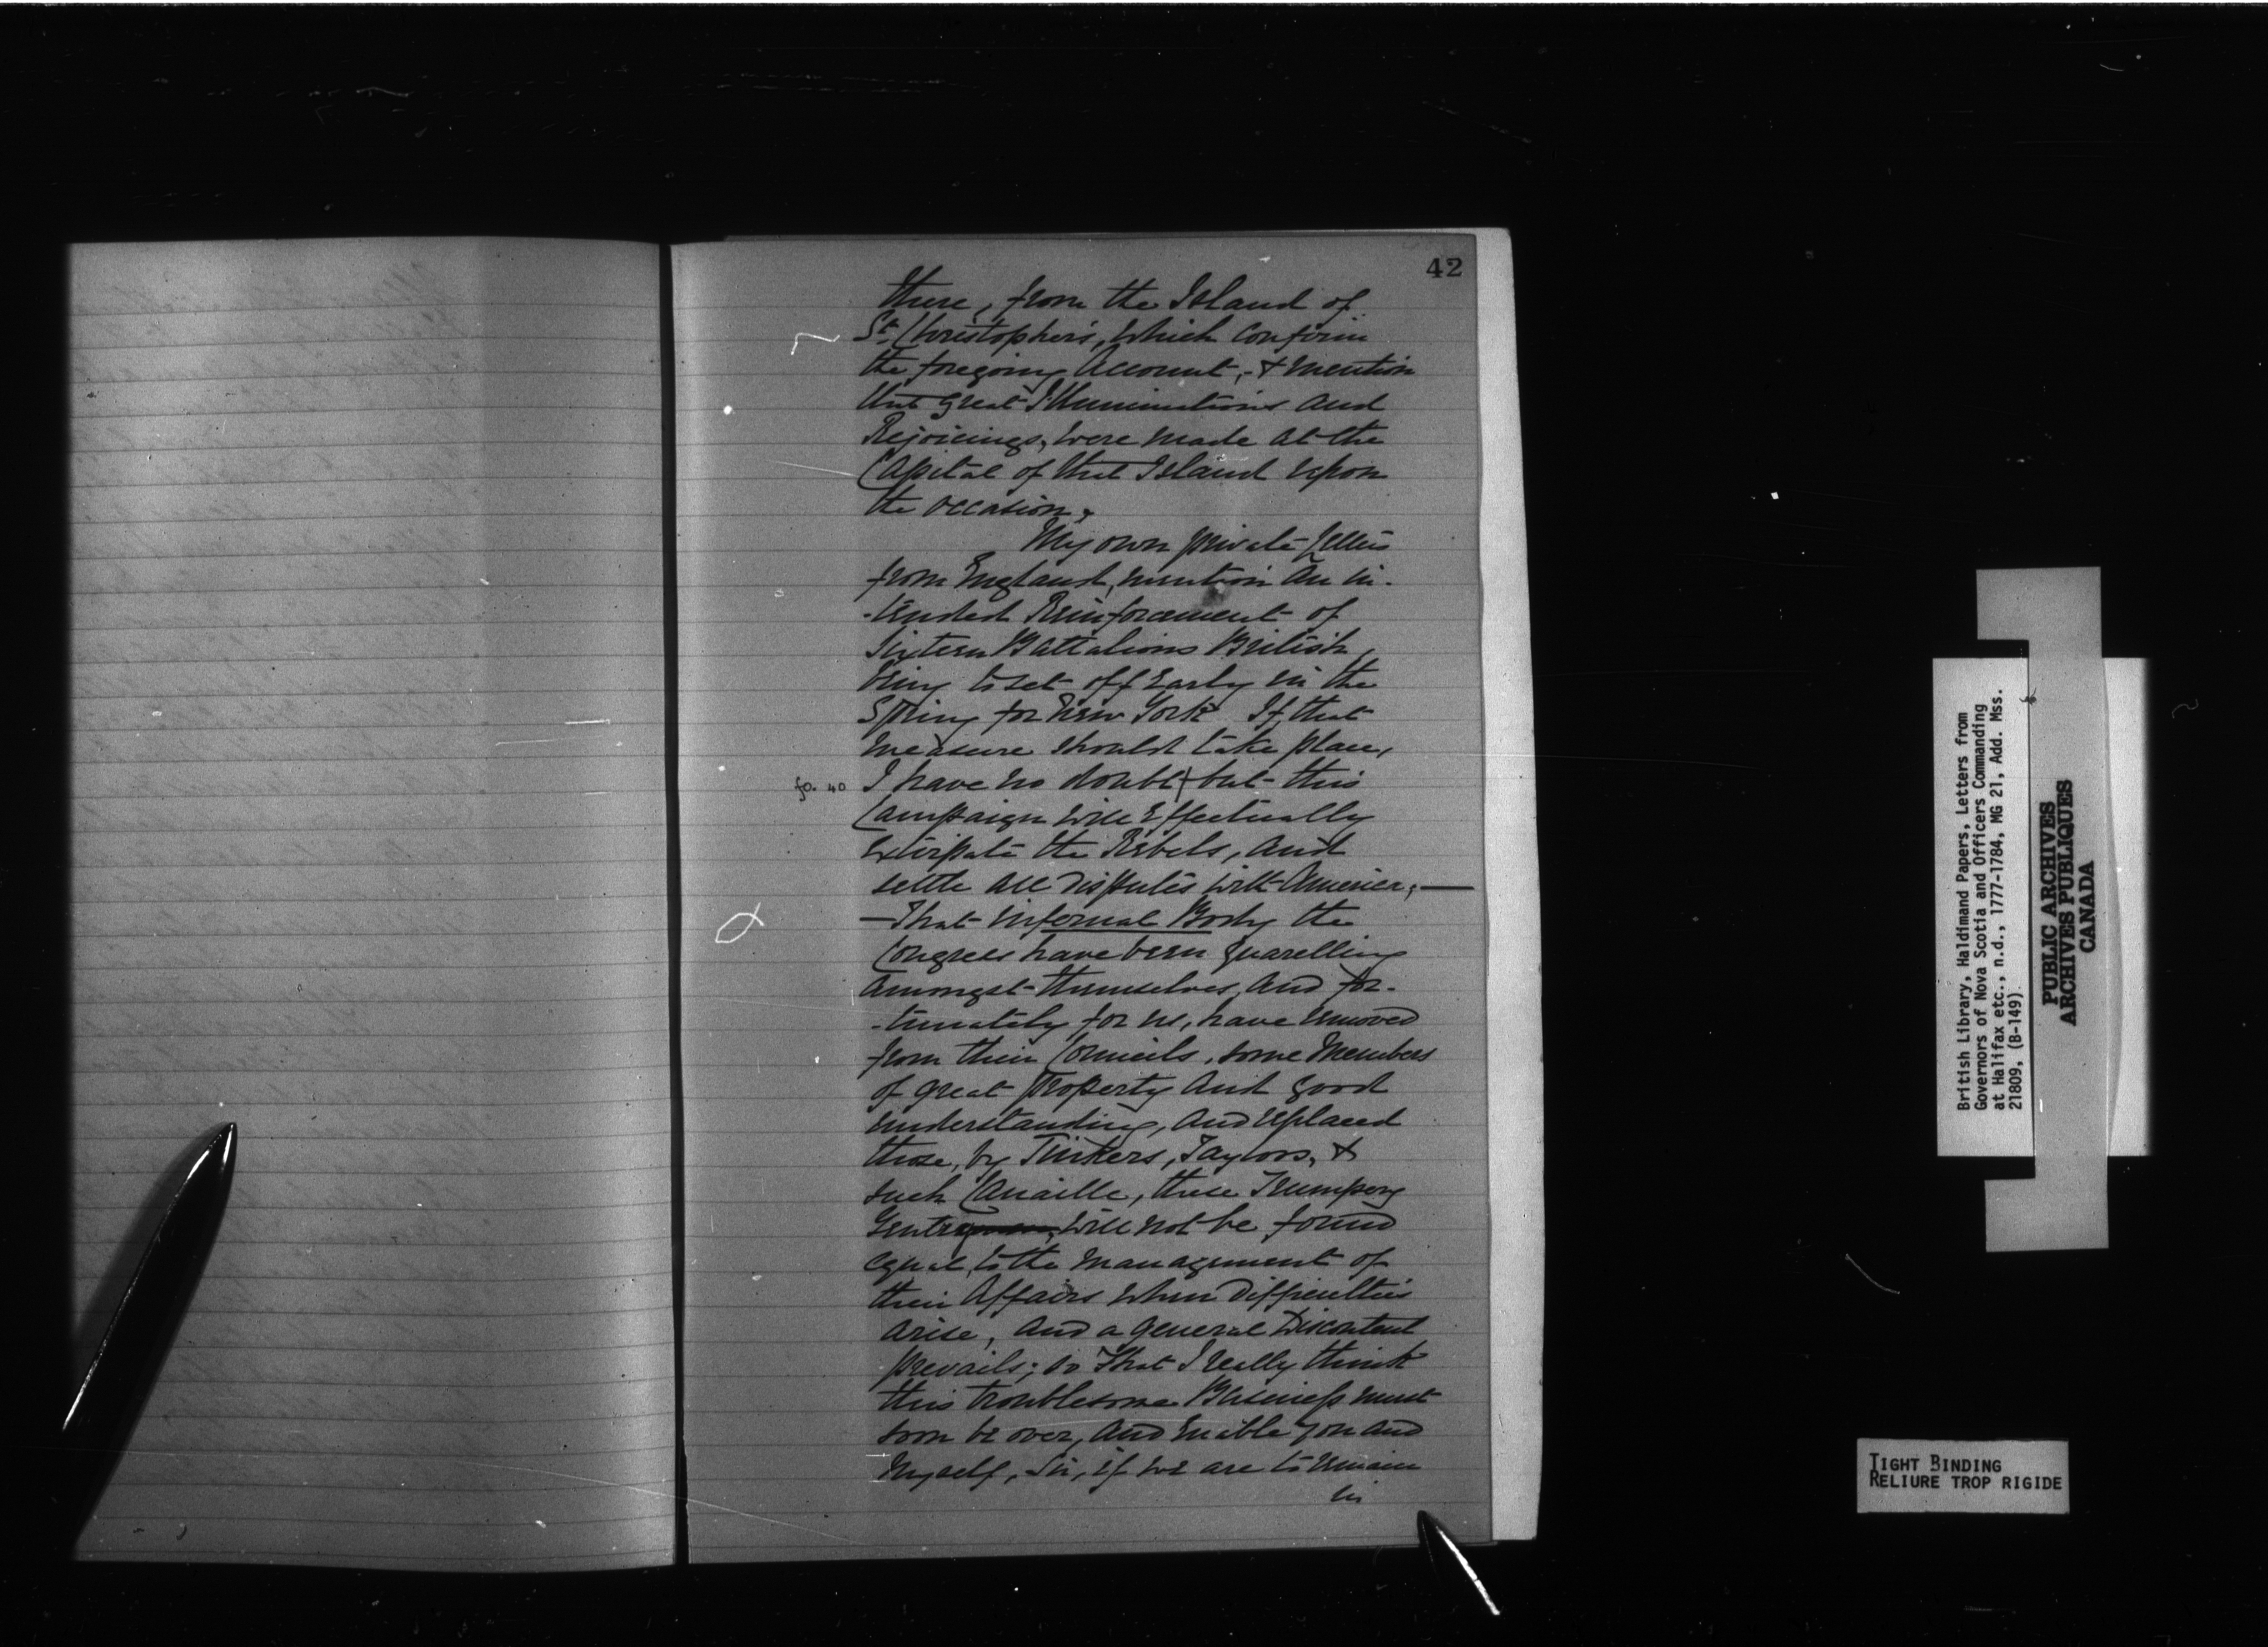 42
there, from the Island of
St. Christopher's, which confirm
the foregoing Account, & mention
that great Illuminations and
Rejoicings, were made at the
Capital of that Island upon
the occasion.
My own private Letters
from England, mention an in-
-tended Reinforcement of
Sixteen Battalions British,
being to set off early in the
Spring for New York If that
measure should take place,
fo. 40
I have no doubt but this
Campaign will Effectually
extirpate the Rebels, and
settle all disputes with America;—
—That infernal Body the
Congress have been quarelling
amongst themselves, and for-
-tunately for us, have removed
from their Councils, some Members
of great Property and good
understanding, and replaced
those, by Tinkers, Taylors, &
such Canaille, these Trumpery
Gentry will not be found
equal to the management of
their Affairs when Difficulties
arise, and a general Discontent
prevails; so that I really think
this troublesome Business must
soon be over, and enable you and
Myself, Sir, if we are to remain
in
British Library, Haldimand Papers, Letters from
Governors of Nova Scotia and Officers Commanding
at Halifax etc., n.d., 1777-1784, MG 21, Add. Mss.
21809, (B-149)
PUBLIC ARCHIVES
ARCHIVES PUBLIQUES
CANADA
TIGHT BINDING
RELIURE TROP RIGIDE